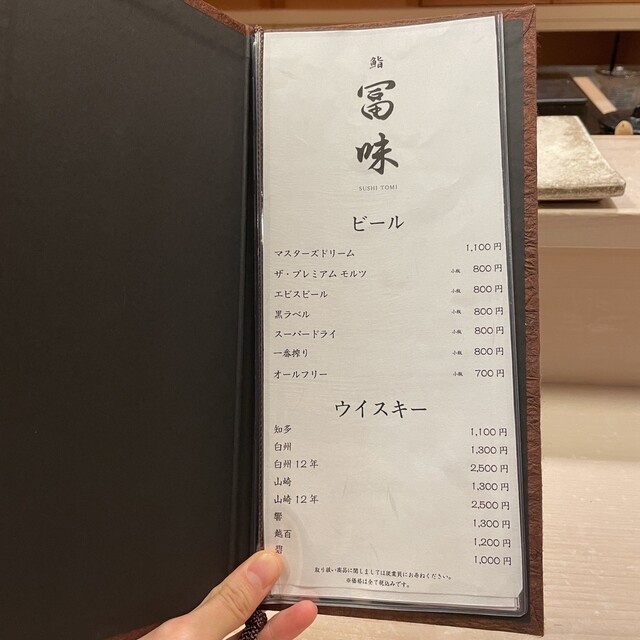 鮨
冨味
SUSHI TOMI
ビール
マスターズドリーム 1,100円
ザ・プレミアム モルツ 小瓶 800円
エビスビール 小瓶 800円
黒ラベル 小瓶 800円
スーパードライ 小瓶 800円
一番搾り 小瓶 800円
オールフリー 小瓶 700円
ウイスキー
知多 1,100円
白州 1,300円
白州 12年 2,500円
山崎 1,300円
山崎 12年 2,500円
響 1,300円
越百 1,200円
碧 1,000円
取り扱い商品に関しましては従業員にお尋ねください。
※価格は全て税込みです。